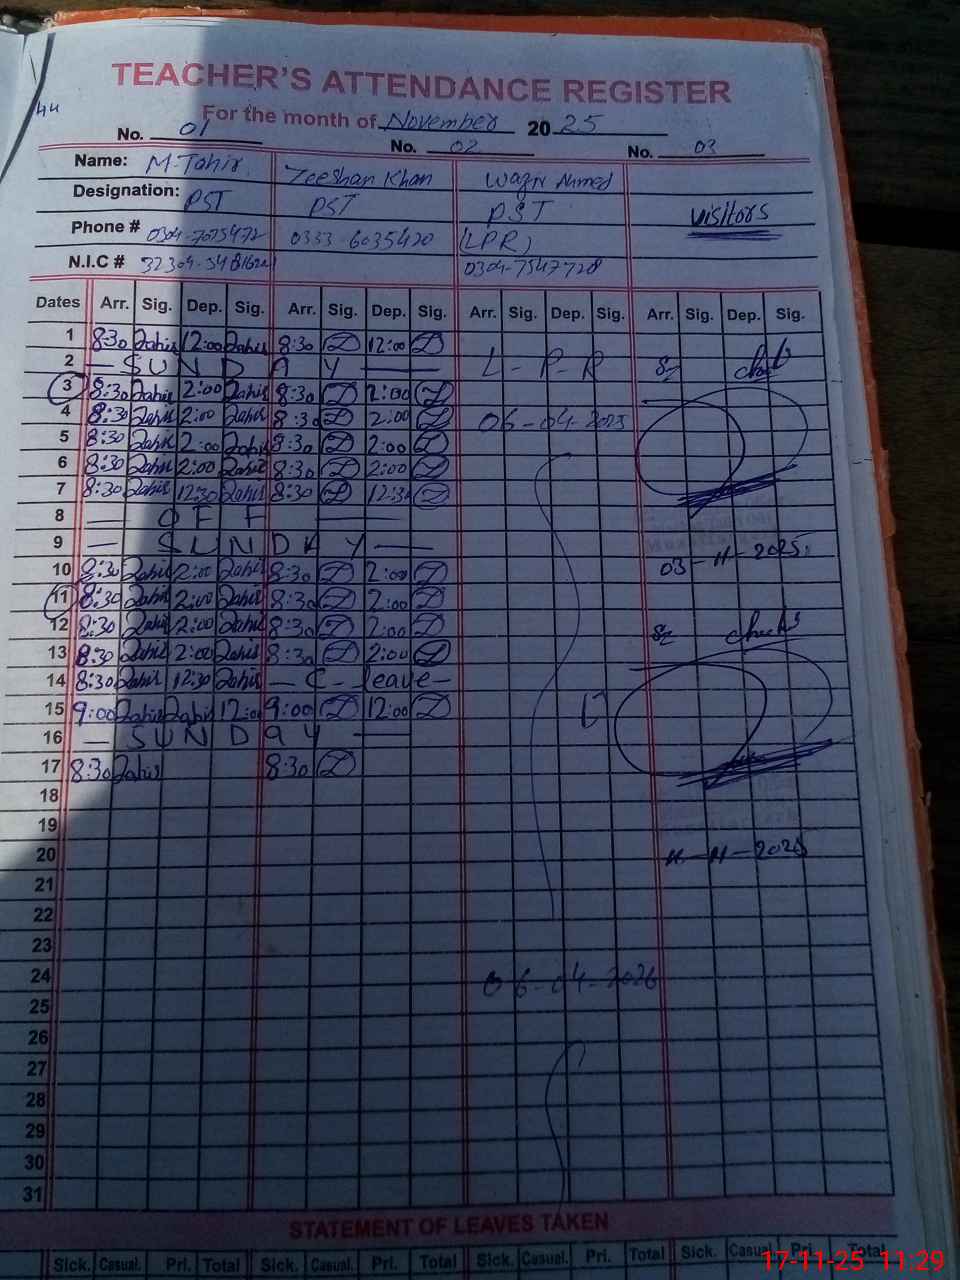 TEACHER'S ATTENDANCE REGISTER
For the month of November 2025
No. 01 No. 02 No. 03
Name: M. Tahir Zeeshan Khan Wazir Ahmed
Designation: PST PST PST visitors
Phone # 0304-7075472 0333-6035420 (LPR)
N.I.C # 0304-7547728
Dates Arr. Sig. Dep. Sig. Arr. Sig. Dep. Sig. Arr. Sig. Dep. Sig. Arr. Sig. Dep. Sig.
1 8:30 Tahir 12:00 Tahir 8:30 12:00
2 — SUNDAY — L-P-R
3 8:30 Tahir 2:00 Tahir 8:30 2:00
4 8:30 Tahir 2:00 Tahir 8:30 2:00 06-04-2025
5 8:30 Tahir 2:00 Tahir 8:30 2:00
6 8:30 Tahir 2:00 Tahir 8:30 2:00
7 8:30 Tahir 12:30 Tahir 8:30 12:30
8 — OFF —
9 — SUNDAY — 03-11-2025
10 8:30 Tahir 2:00 Tahir 8:30 2:00
11 8:30 Tahir 2:00 Tahir 8:30 2:00
12 8:30 Tahir 2:00 Tahir 8:30 2:00
13 8:30 Tahir 2:00 Tahir 8:30 2:00
14 8:30 Tahir 12:30 Tahir — C - leave —
15 9:00 Tahir Tahir 12:00 9:00 12:00
16 — SUNDAY —
17 8:30 Tahir 8:30
18
19
20 11-11-2025
21
22
23
24 06-04-2026
25
26
27
28
29
30
31
STATEMENT OF LEAVES TAKEN
Sick. Casual. Pri. Total Sick. Casual. Pri. Total Sick. Casual. Pri. Total Sick. Casual. Pri. Total
17-11-25 11:29